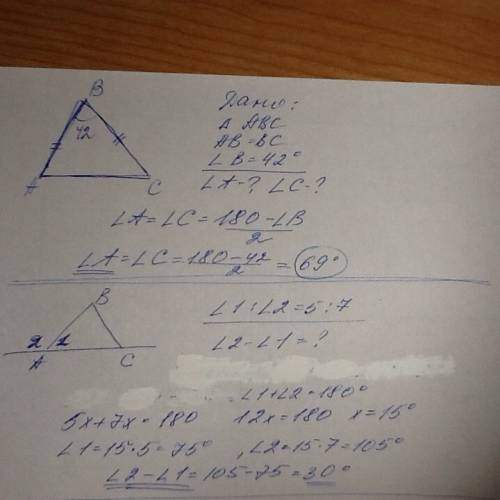 B
42
A
C
Дано:
Δ ABC
AB = BC
∠B = 42°
∠A - ? ∠C - ?
∠A = ∠C = 180 - ∠B / 2
∠A = ∠C = 180 - 42 / 2 = 69°
B
2 1
A
C
∠1 : ∠2 = 5 : 7
∠2 - ∠1 = ?
∠1 + ∠2 = 180°
5x + 7x = 180 12x = 180 x = 15°
∠1 = 15 · 5 = 75° , ∠2 = 15 · 7 = 105°
∠2 - ∠1 = 105 - 75 = 30°